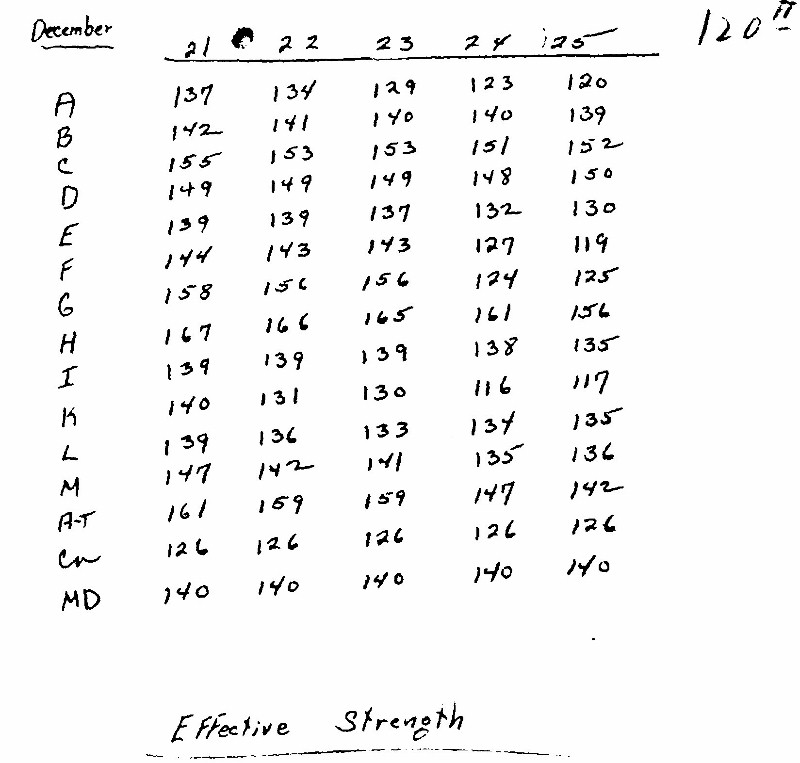 December 21 22 23 24 25 120 II
A 137 134 129 123 120
B 142 141 140 140 139
C 155 153 153 151 152
D 149 149 149 148 150
E 139 139 137 132 130
F 144 143 143 127 119
G 158 156 156 124 125
H 167 166 165 161 156
I 139 139 139 138 135
K 140 131 130 116 117
L 139 136 133 134 135
M 147 142 141 135 136
A-T 161 159 159 147 142
Cn 126 126 126 126 126
MD 140 140 140 140 140
Effective Strength